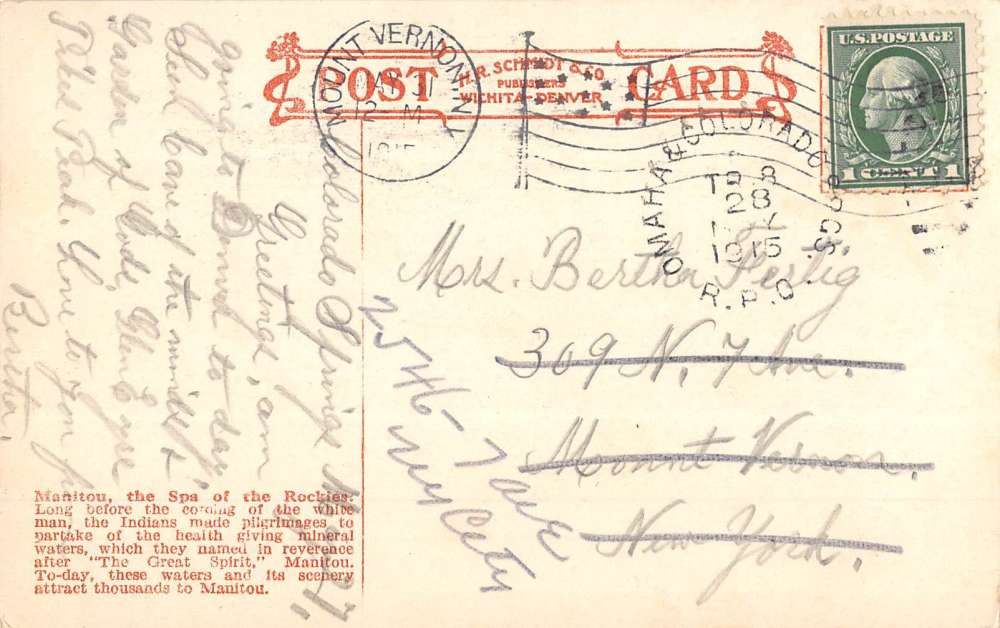 POST CARD
H.R. SCHMIDT & CO.
PUBLISHERS
WICHITA-DENVER
U.S. POSTAGE
1 CENT 1
MOUNT VERNON, N.Y.
MAY 31
2 M
1915
OMAHA & COLORADO SPGS.
TR 8
28
1915
R.P.O.
Colorado Springs May 27,
Greetings, am
going to Denver to day.
Seen Cave of the winds &
Garden of Gods Glen Eyre
Pikes Peak. Love to you
Mrs. Bertha Fertig
309 N. 7 Ave.
Mount Vernon.
New York.
2546- 7 ave
NY City
Manitou, the Spa of the Rockies.
Long before the coming of the white
man, the Indians made pilgrimages to
partake of the health giving mineral
waters, which they named in reverence
after "The Great Spirit," Manitou.
To-day, these waters and its scenery
attract thousands to Manitou.